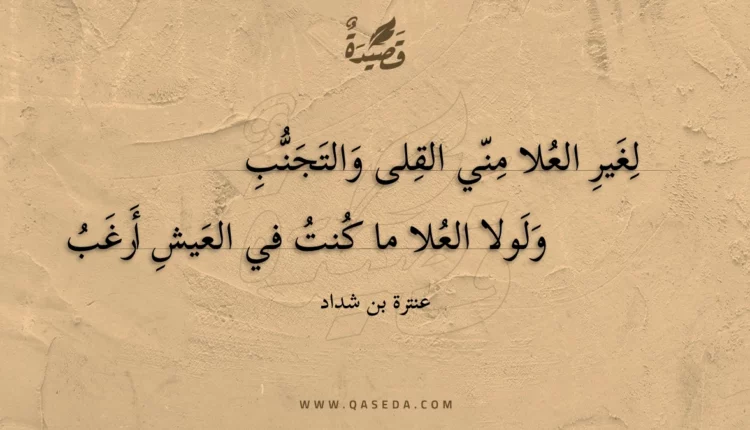 قَصِيْدَةٌ
لِغَيرِ العُلا مِنّي القِلى وَالتَجَنُّبِ
وَلَولا العُلا ما كُنتُ في العَيشِ أَرغَبُ
عنترة بن شداد
WWW.QASEDA.COM